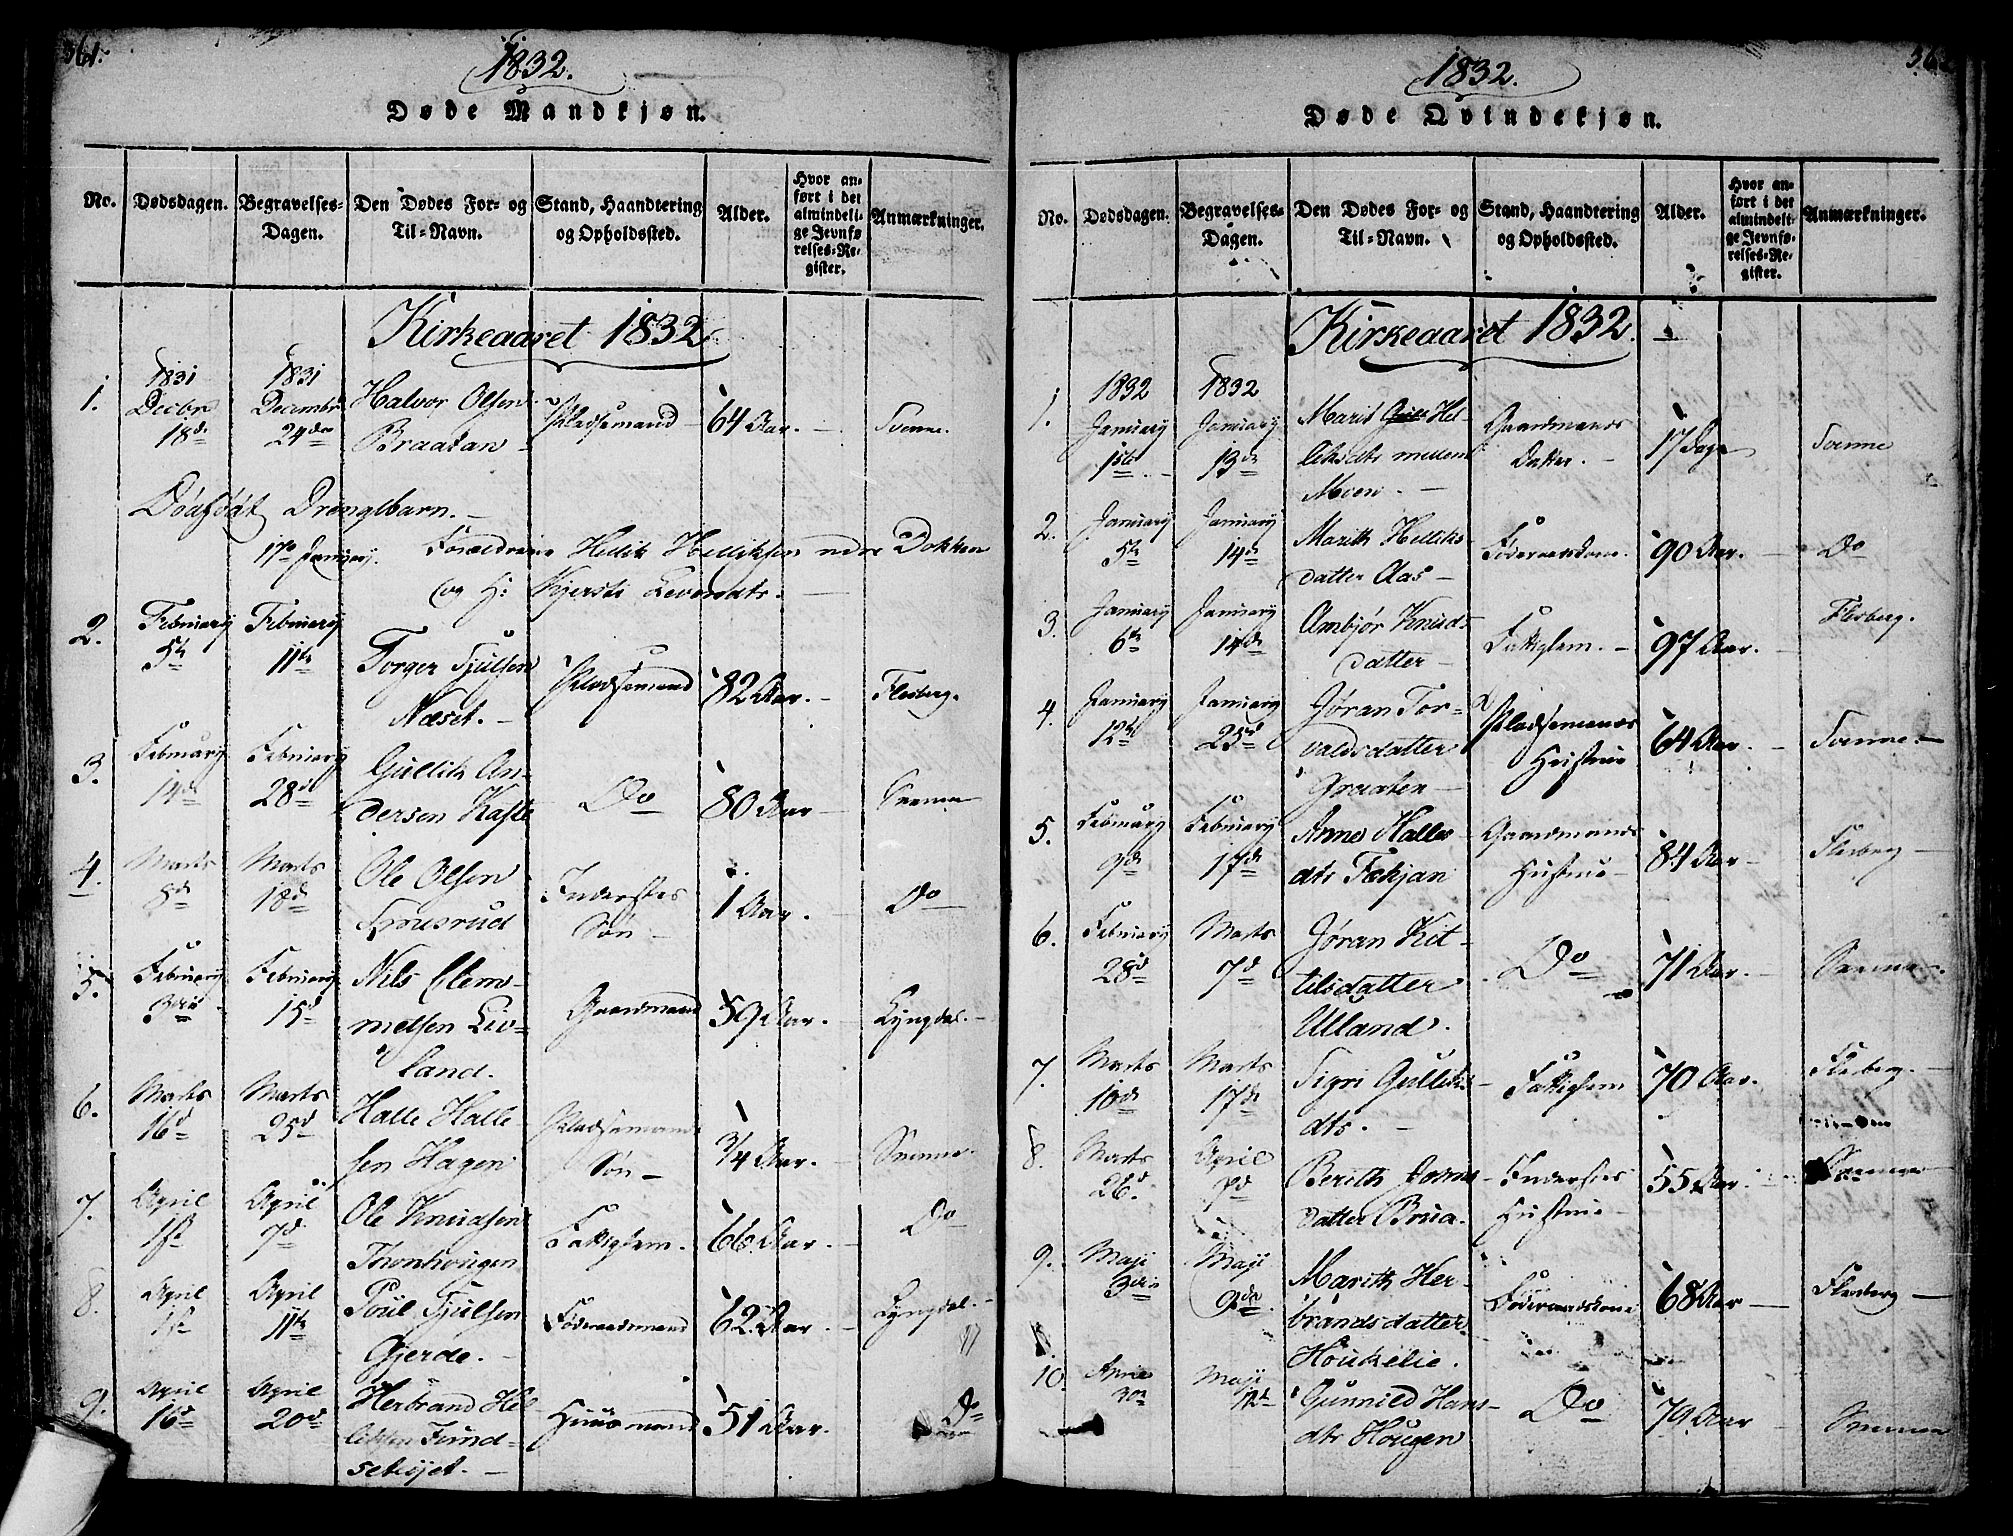 361.
1832.
Døde Mandkjøn.
No.
Dødsdagen.
Begravelses-
Dagen.
Den Dødes For- og
Til-Navn.
Stand, Haandtering
og Opholdssted.
Alder.
Hvor an-
ført i det
almindeli-
ge Jevnfø-
relses-Re-
gister.
Anmærkninger.
Kirkeaaret 1832
1.
1831
Decbr
18de
1831
Decembr
24de
Halvor Olsen
Braatan
Pladsemand
64 Aar.
Svenne.
Dødfødt Drengbarn.
17de January.
Forældrene Hellik Helliksen ndre Dokken
og H: Kjersti Levordts.
2.
February
5te
February
11te
Torger Tjulsen
Næset.
Pladsemand
82 Aar.
Flesberg.
3.
February
14de
February
28de
Gullik An-
dersen Kaste
Do
80 Aar
Svenne
4.
Marts
8de
Marts
18de
Ole Olsen
Inderstes
Søn
1 Aar.
Do
5.
February
3die
February
15de
Nils Clem-
metsen Liv-
land.
Gaardmand
59 Aar.
Lyngdal.
6.
Marts
16de
Marts
25de
Halle Halle
sen Hagen
Pladsemands
Søn
3/4 Aar.
Svenne.
7.
April
1ste
April
7de
Ole Knudsen
Fattiglem.
66 Aar.
Do
8.
April
1ste
April
11te
Poul Tjulsen
Gjerde.
Føderaadsmand
62 Aar.
Lyngdal.
9.
April
16de
April
20de
Herbrand Hel
liksen Fund-
sethøjet.
Huusmand
51 Aar.
Do
1832.
Døde Qvindekjøn.
No.
Dødsdagen.
Begravelses-
Dagen.
Den Dødes For- og
Til-Navn.
Stand, Haandtering
og Opholdssted.
Alder.
Hvor an-
ført i det
almindeli-
ge Jevnfø-
relses-Re-
gister.
Anmærkninger.
Kirkeaaret 1832.
1.
1832
January
1ste
1832
January
13de
Marit Hel-
liksdts mellem
Moen.
Gaardmands
Datter.
17 Dage
Svenne
2.
January
5te
January
14de
Marith Helliks-
datter Aas
Føderaadskone.
90 Aar.
Do
3.
January
6te
January
14de
Ambjør Knuds-
datter
Fattiglem.
97 Aar.
Flesberg.
4.
January
12te
January
25de
Jøran Tor-
valdsdatter
Graaten
Pladsemands
Hustrue
64 Aar.
Svenne
5.
February
9de
February
17de
Anne Halles
dts Tækjan
Gaardmands
Hustrue
84 Aar
Flesberg
6.
February
28de
Marts
7de
Jøran Kit-
tilsdatter
Ulland.
Do
71 Aar.
Svenne.
7.
Marts
10de
Marts
17de
Sigri Gulliks-
dts.
Fattiglem
70 Aar.
Flesberg.
8.
Marts
26de
April
7de
Berith Jørns
datter Brua.
Inderstes
Hustrue
55 Aar.
Svenne
9.
Maji
3die
Maji
9de
Marith Her-
brandsdatter
Houkelie.
Føderaadskone
68 Aar
Flesberg
10.
April
30te
Maji
12te
Gunnild Hans-
dts Hougen
Do
79 Aar
Svenne